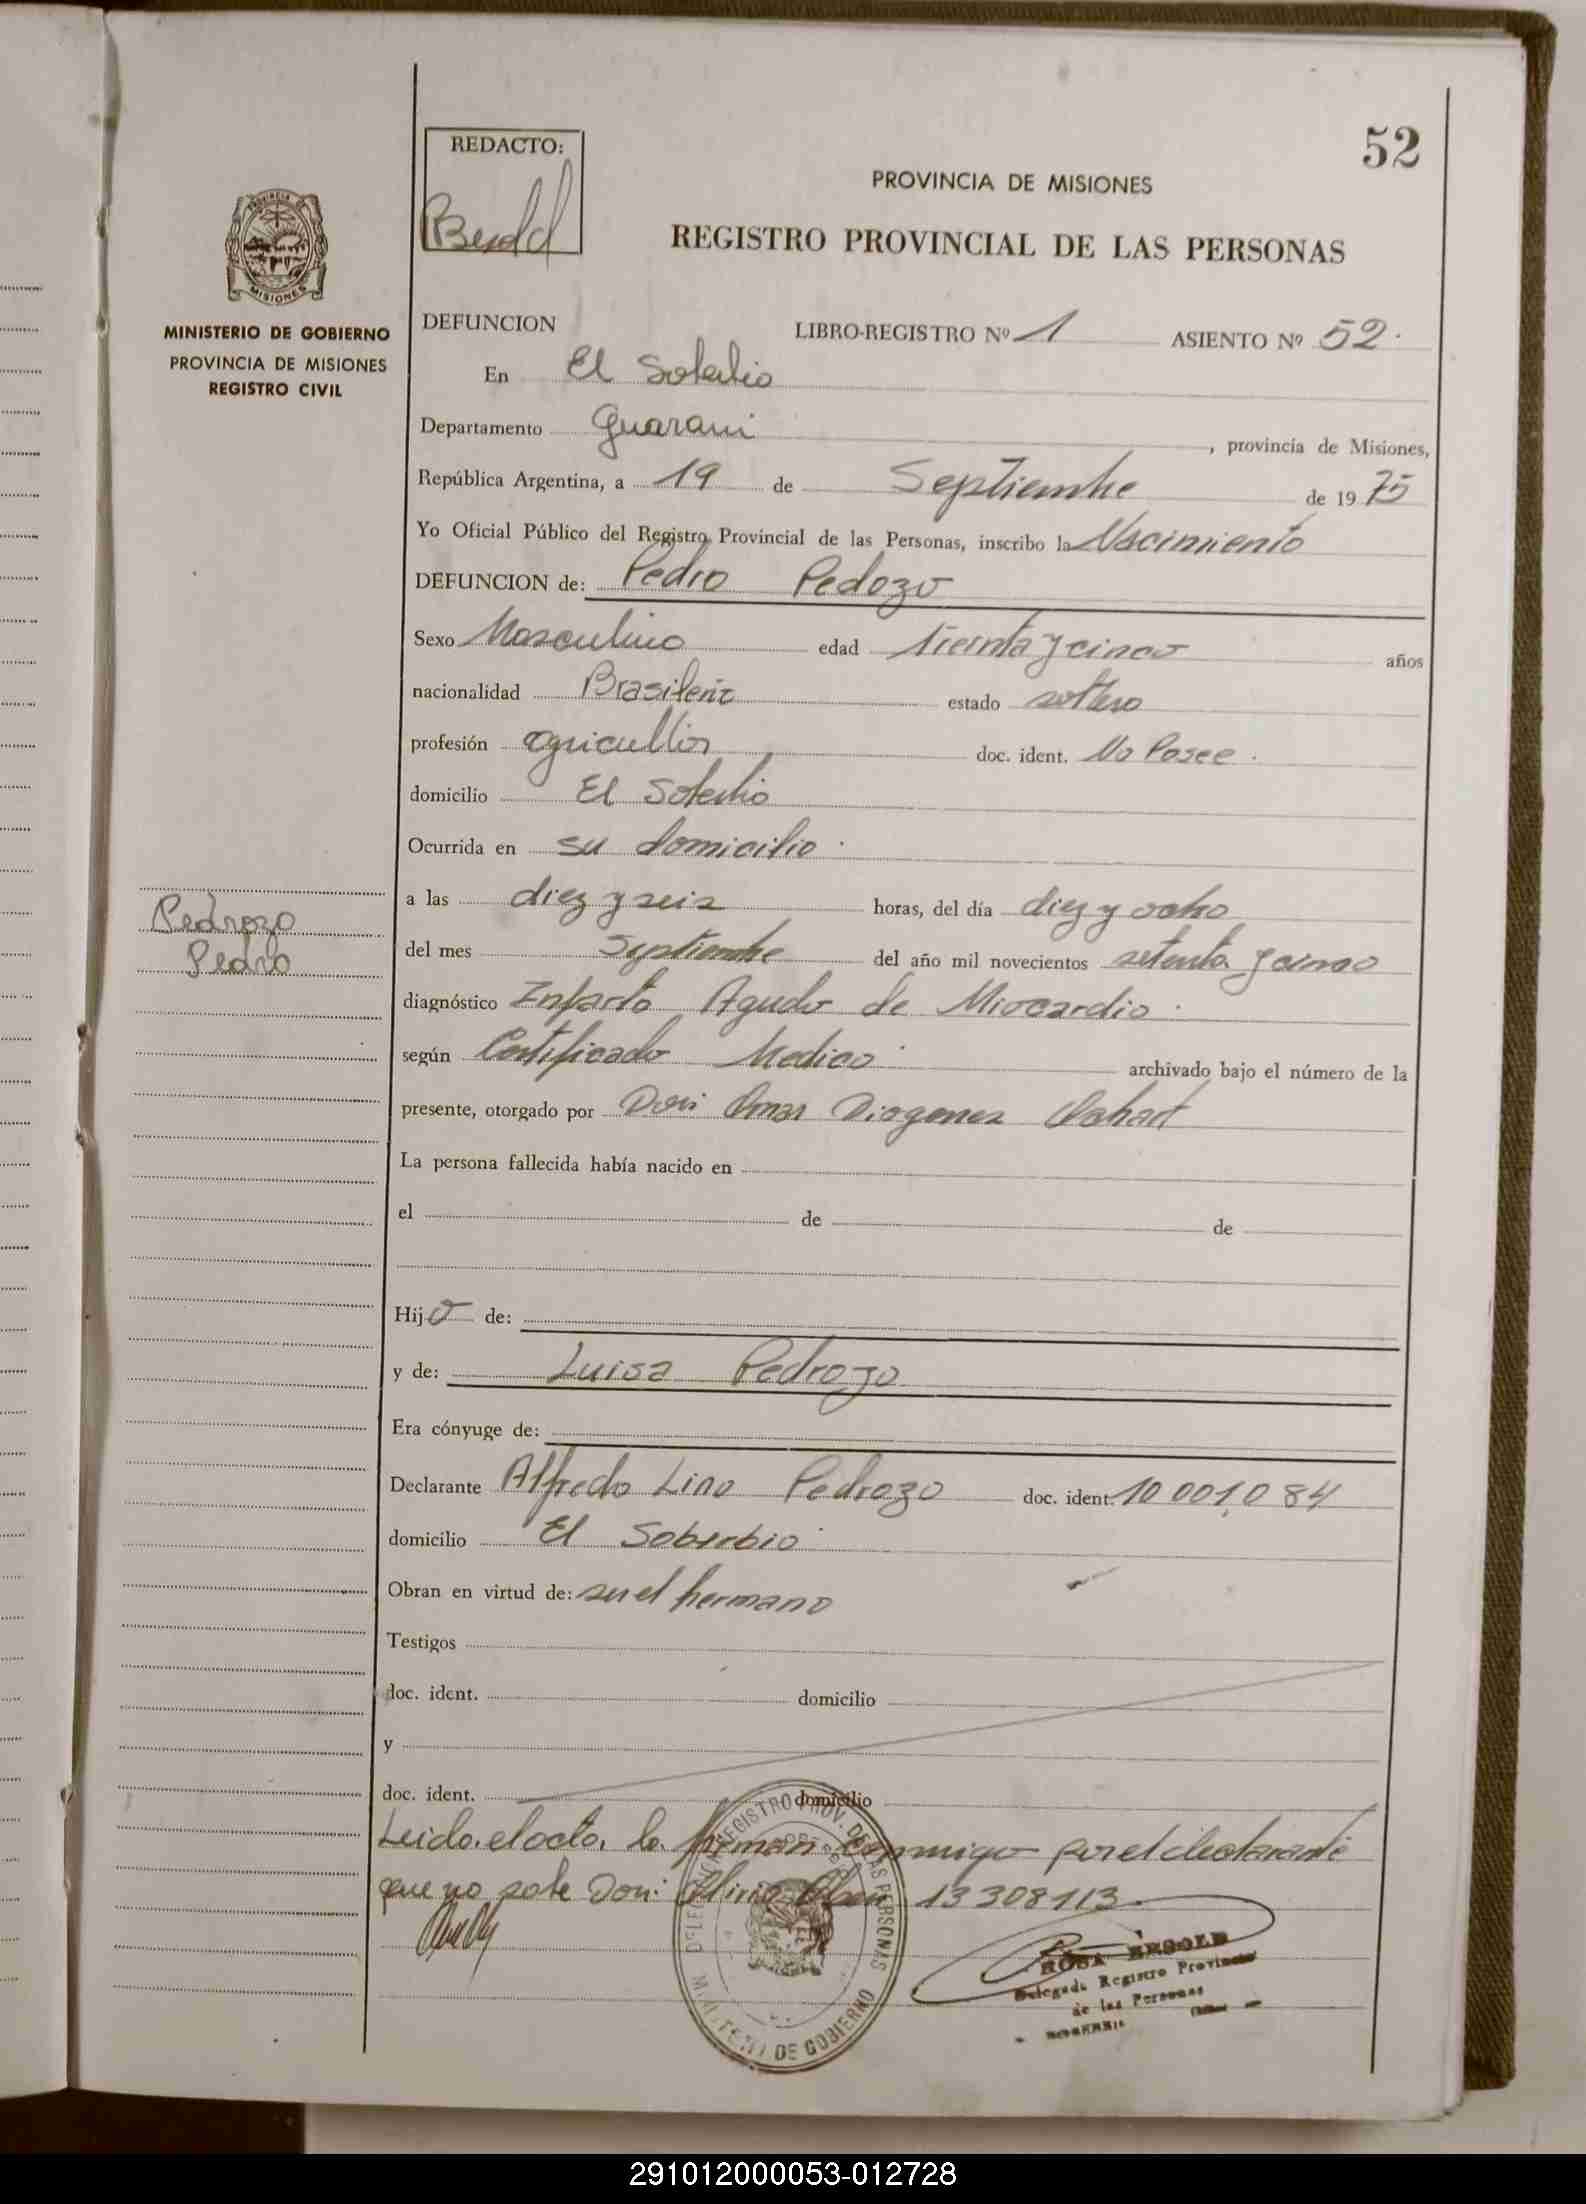 52
REDACTO:
PROVINCIA DE MISIONES
REGISTRO PROVINCIAL DE LAS PERSONAS
PROVINCIA DE
MISIONES
MINISTERIO DE GOBIERNO
PROVINCIA DE MISIONES
REGISTRO CIVIL
DEFUNCION LIBRO-REGISTRO Nº 1 ASIENTO Nº 52.
En El Soberbio
Departamento Guarani, provincia de Misiones,
República Argentina, a 19 de Septiembre de 1975
Yo Oficial Público del Registro Provincial de las Personas, inscribo la Nacimiento
DEFUNCION de: Pedro Pedozo
Sexo Masculino edad treinta y cinco años
nacionalidad Brasileña estado soltero
profesión agricultor doc. ident. No Posee.
domicilio El Soberbio
Ocurrida en su domicilio.
a las diez y seis horas, del día diez y ocho
Pedrozo
Pedro
del mes Septiembre del año mil novecientos setenta y cinco
diagnóstico Infarto Agudo de Miocardio.
según Certificado Medico archivado bajo el número de la
presente, otorgado por Don Omar Diogenes
La persona fallecida había nacido en
el de de
Hijo de:
y de: Luisa Pedrozo
Era cónyuge de:
Declarante Alfredo Lino Pedrozo doc. ident. 10 001,084
domicilio El Soberbio
Obran en virtud de: ser el hermano
Testigos
doc. ident. domicilio
y
doc. ident. domicilio
Leida el acta, la firman conmigo por el declarante
que no sabe Don: 13 308113
DELEGACION REGISTRO PROV. DE LAS PERSONAS
DE GOBIERNO
ROSA
Delegada Registro Provincial
de las Personas
291012000053-012728